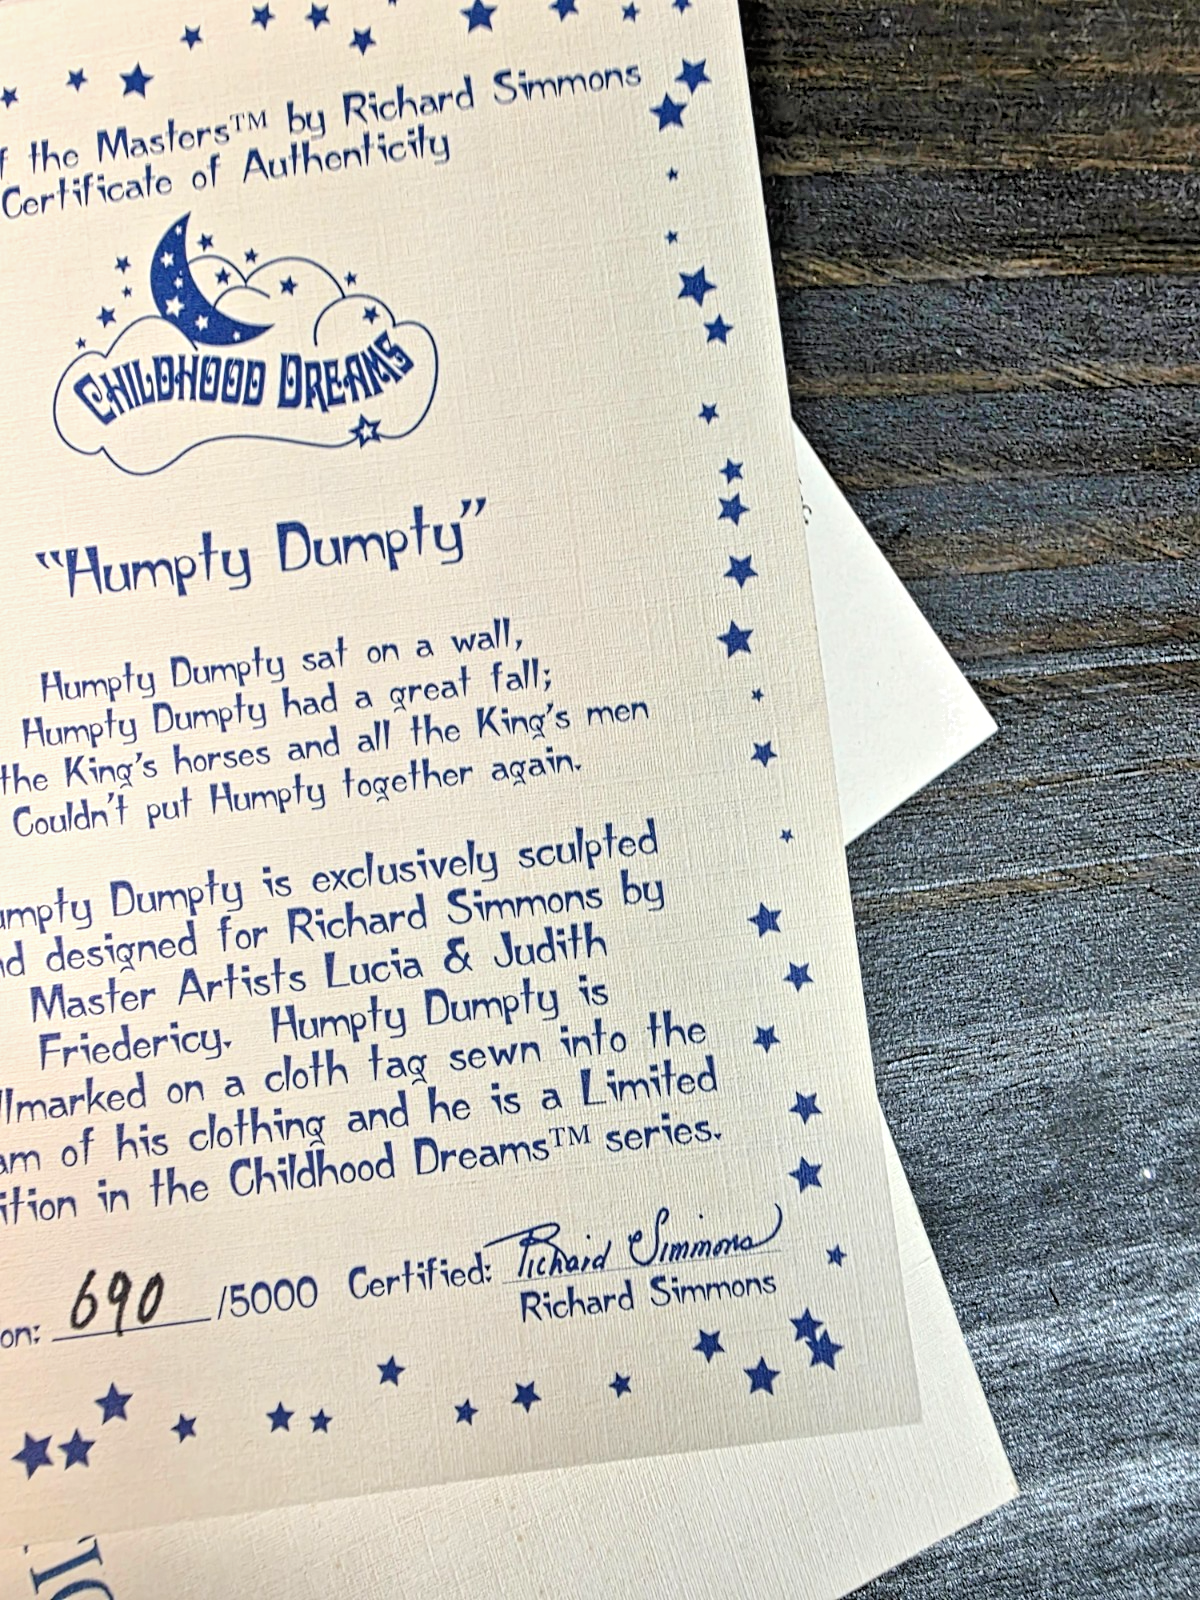 the Masters™ by Richard Simmons
Certificate of Authenticity
CHILDHOOD DREAMS
“Humpty Dumpty”
Humpty Dumpty sat on a wall,
Humpty Dumpty had a great fall;
the King's horses and all the King's men
Couldn't put Humpty together again.
Dumpty is exclusively sculpted
designed for Richard Simmons by
Master Artists Lucia & Judith
Friedericy. Humpty Dumpty is
on a cloth tag sewn into the
of his clothing and he is a Limited
in the Childhood Dreams™ series.
690 /5000 Certified: Richard Simmons
Richard Simmons